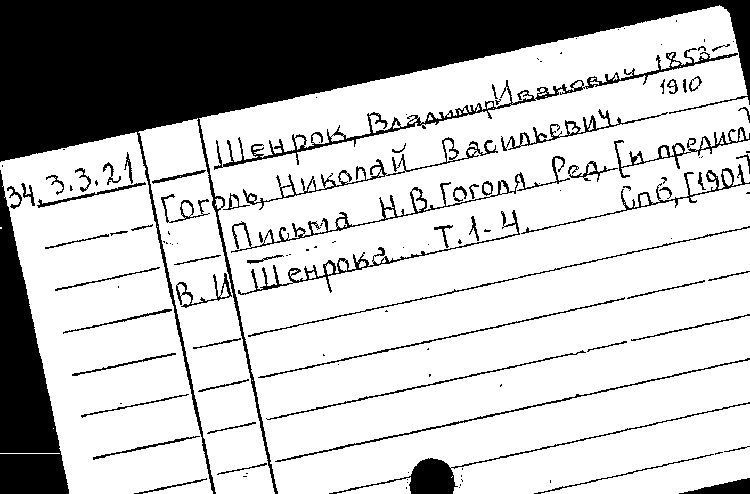 Шенрок, Владимир Иванович, 1853-
1910
34.3.3.21
Гоголь, Николай Васильевич.
Письма Н.В.Гоголя. Ред. [и предисл]
В.И. Шенрока... Т.1-4. Спб, [1901]